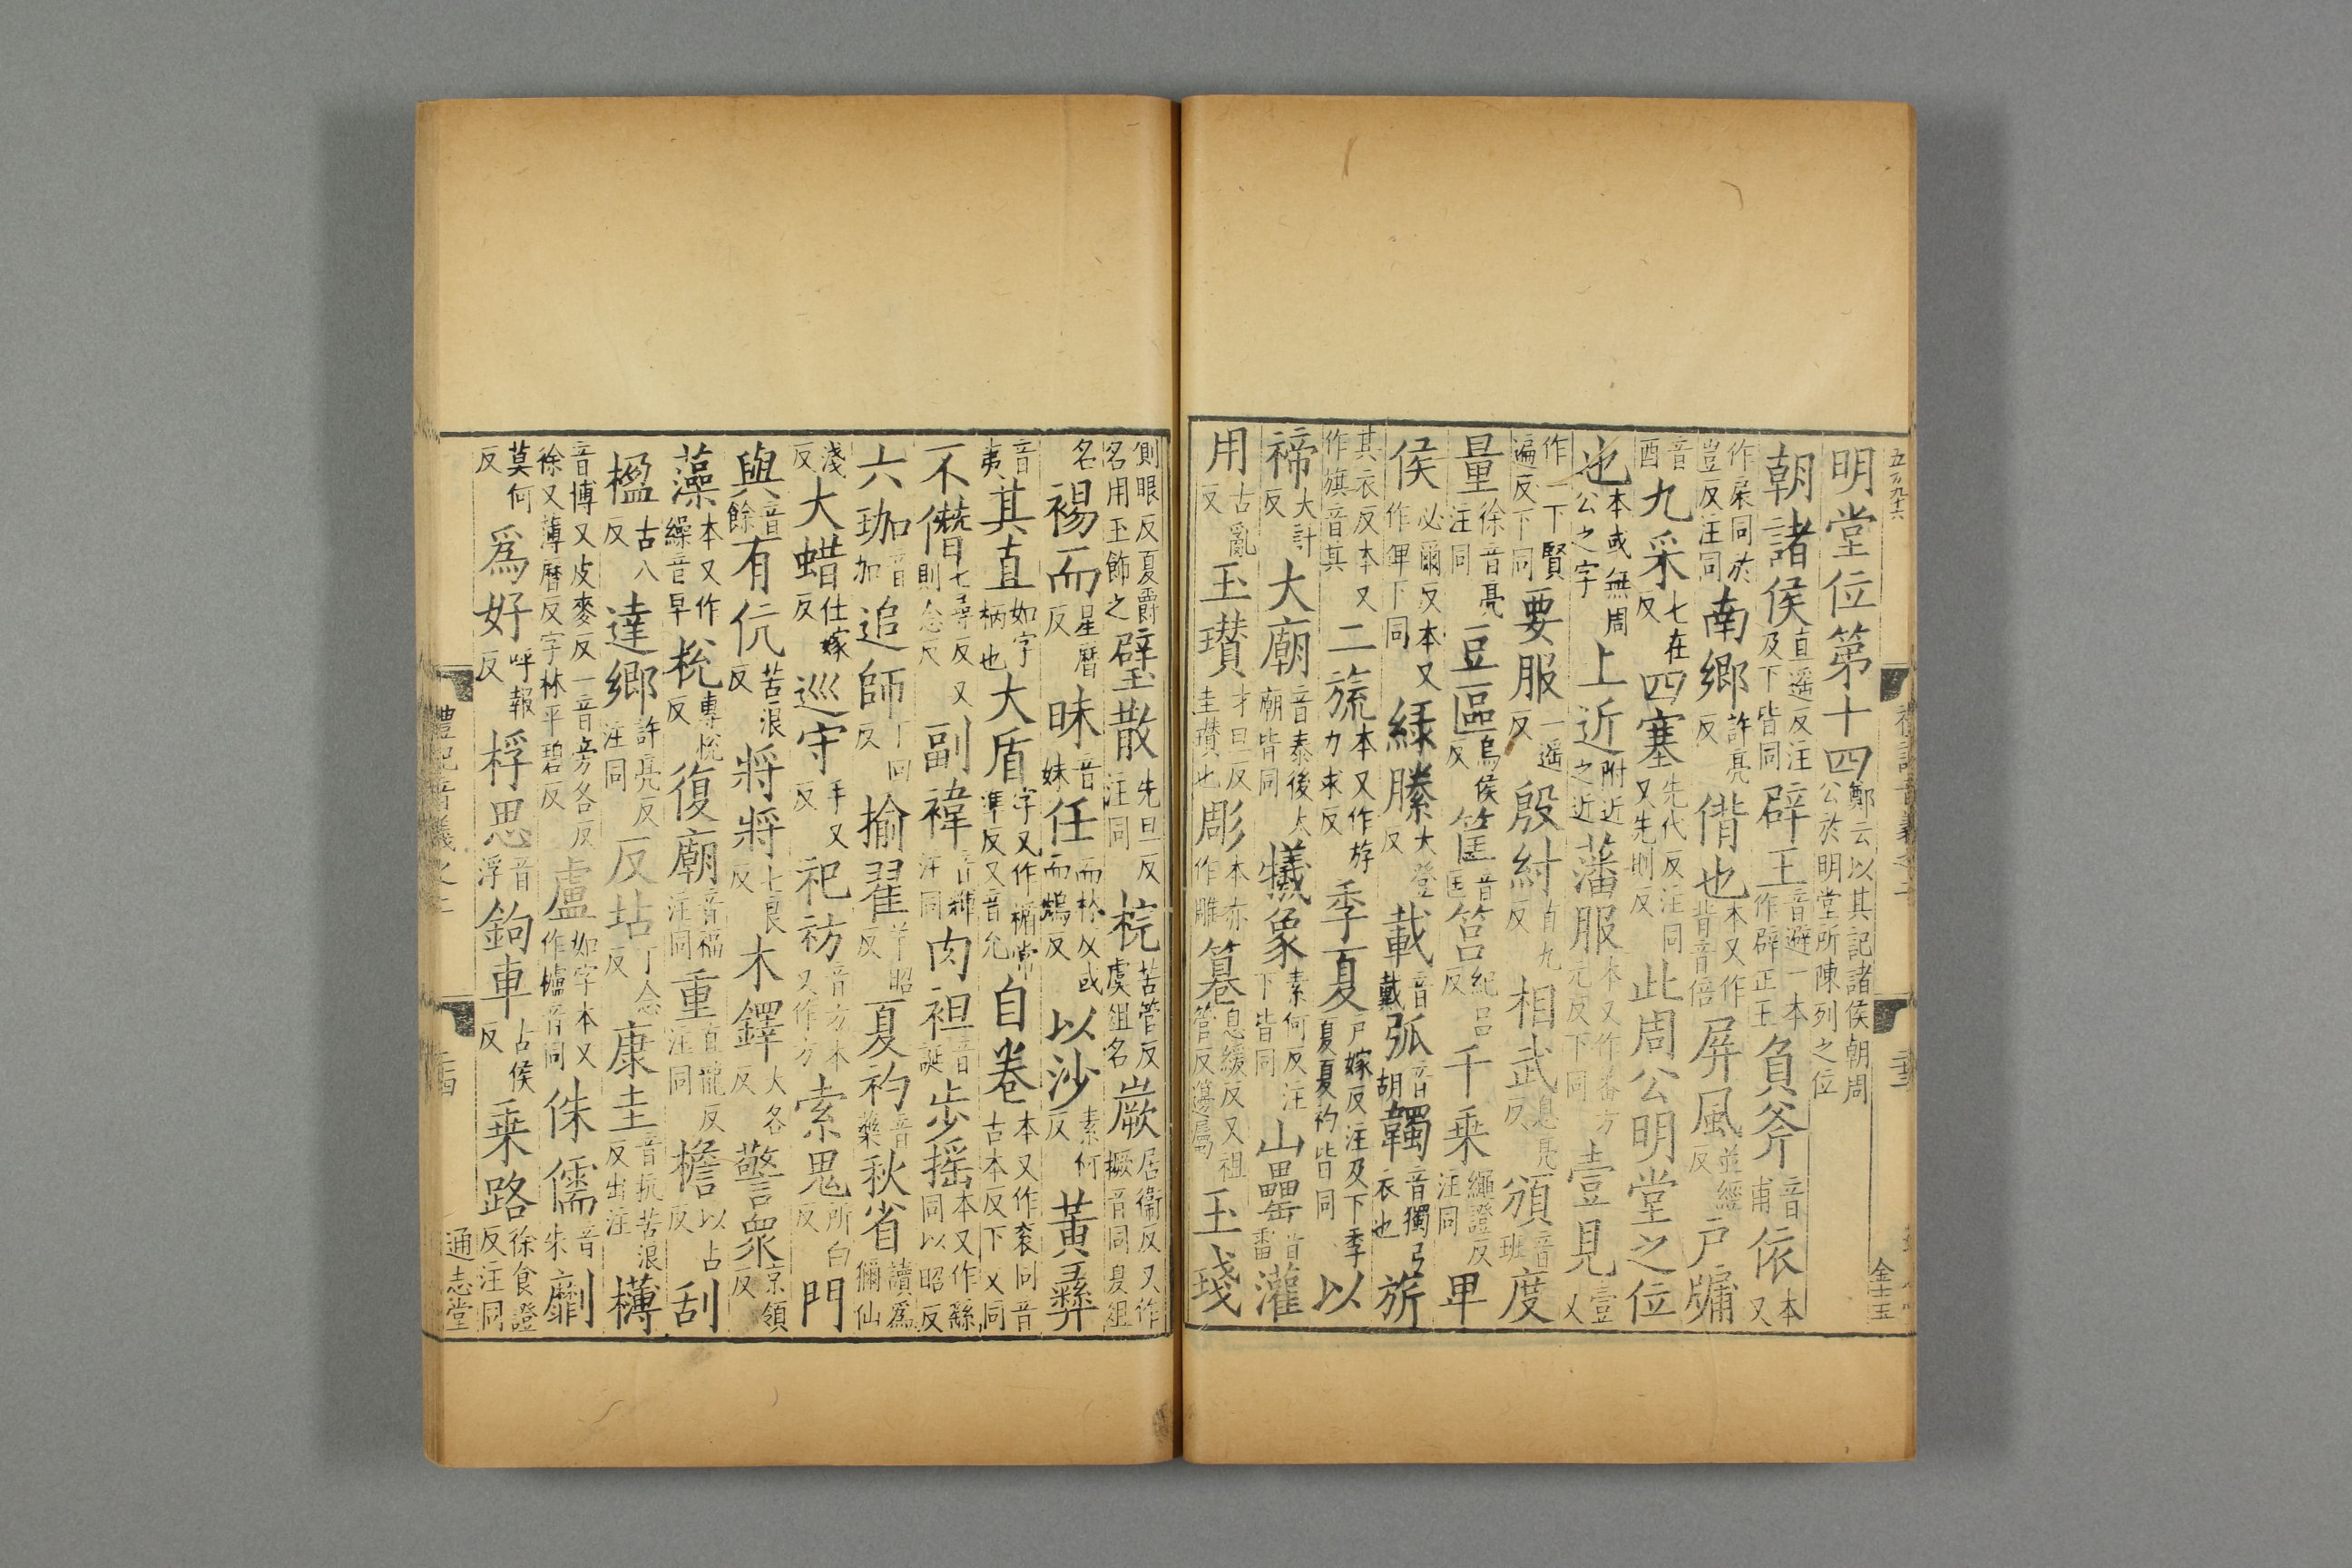 明堂位第十四鄭云以其記諸侯朝周公於明堂所陳列之位
朝諸侯直遥反注及下皆同辟王音避一本作辟正王負斧音甫依本又
作扆同於豈反注同南鄉許亮反偝也本又作背音倍屏風並經反戶牖
音酉九采七在反四塞先代反注同又先則反此周公明堂之位
也本或無周公之字上近附近之近藩服本又作蕃方元反下同壹見壹又
作一下賢遍反下同要服一遥反殷紂直九反相武息亮反頒音班度
量徐音亮注同豆區烏侯反筐音匡筥紀呂反千乗繩證反注同卑
侯必爾反本又作俾下同綠縢大登反載音戴弧音胡韣音獨弓衣也旂
其衣反本又作旗音其二旒本又作斿力求反季夏戶嫁反注及下季夏夏礿皆同以
禘大計反大廟音泰後大廟皆同犧象素何反注下皆同山罍音雷灌
用古亂反玉瓚才旦反圭瓚也彫本亦作雕篹息緩反又祖管反籩屬玉琖
側眼反夏爵名用玉飾之璧散先旦反注同梡苦管反虞俎名嶡居衛反又作橛音同夏俎
名裼而星曆反昧音妹任而林反或而鴆反以沙素何反黃彝
音夷其直如字柄也大盾字又作楯常凖反又音允自卷本又作袞同音古本反下又同
不僭七尋反又則念反副褘音輝注同肉袒音誕步摇本又作繇同以昭反
六珈音加追師丁回反揄翟羊昭反夏礿音藥秋省讀爲獮仙
淺反大蜡仕嫁反巡守手又反祀祊音方本又作方索鬼所白反門
與音餘有伉苦浪反將將七良反木鐸大各反警衆京領反
藻本又作繰音早梲專悅反復廟音福注同重直龍反注同檐以占反刮
楹古八反達鄉許亮反注同反坫丁念反康圭音抗苦浪反出注欂
音博又皮麥反一音旁各反徐又薄曆反字林平碧反盧如字本又作櫨音同侏儒音朱劘
莫何反爲好呼報反桴思音浮鉤車古侯反乗路徐食證反注同
通志堂